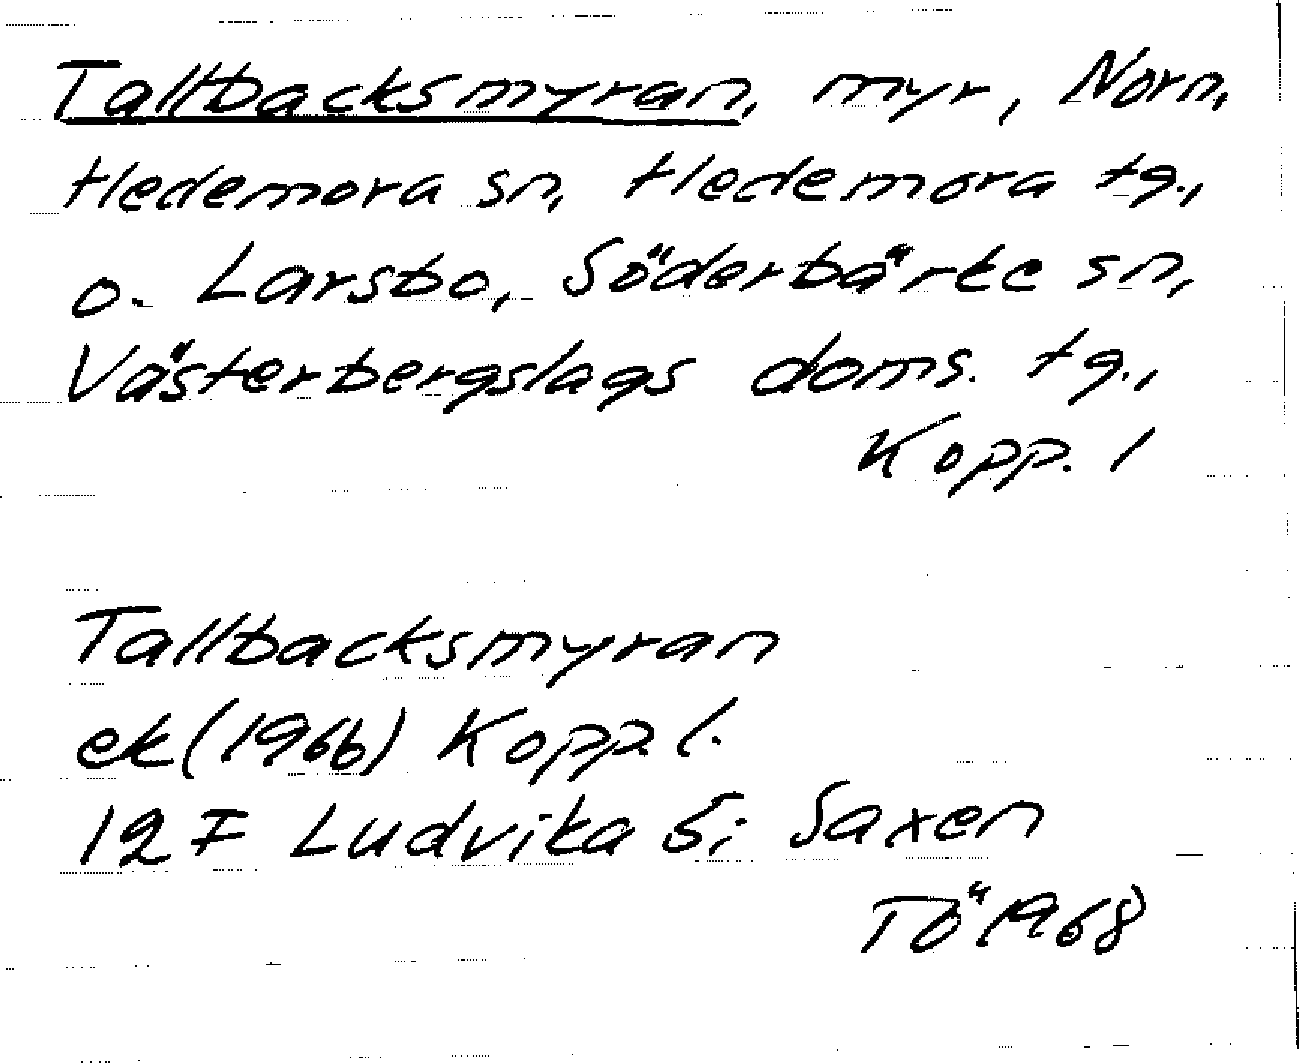 Tallbacksmyran, myr, Norn,
Hedemora sn, Hedemora tg.,
o. Larsbo, Söderbärke sn,
Västerbergslags doms. tg.,
Kopp. l
Tallbacksmyran
ek (1966) Kopp l.
12 F Ludvika 5i Saxen
TÖ 1968